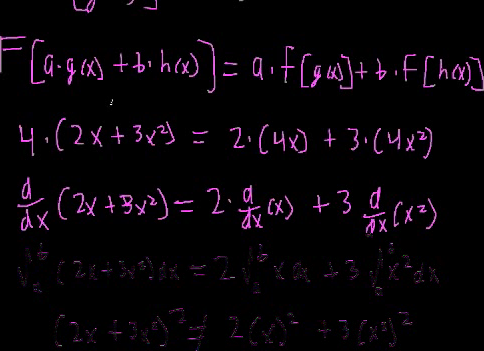 F[a·g(x) + b·h(x)] = a·f[g(x)] + b·F[h(x)]
4·(2x + 3x²) = 2·(4x) + 3·(4x²)
d/dx (2x + 3x²) = 2·d/dx (x) + 3 d/dx (x²)
(2x + 3x²)dx = 2 + 3 x² dx
(2x + 3x²)² ≠ 2(x)² + 3(x²)²